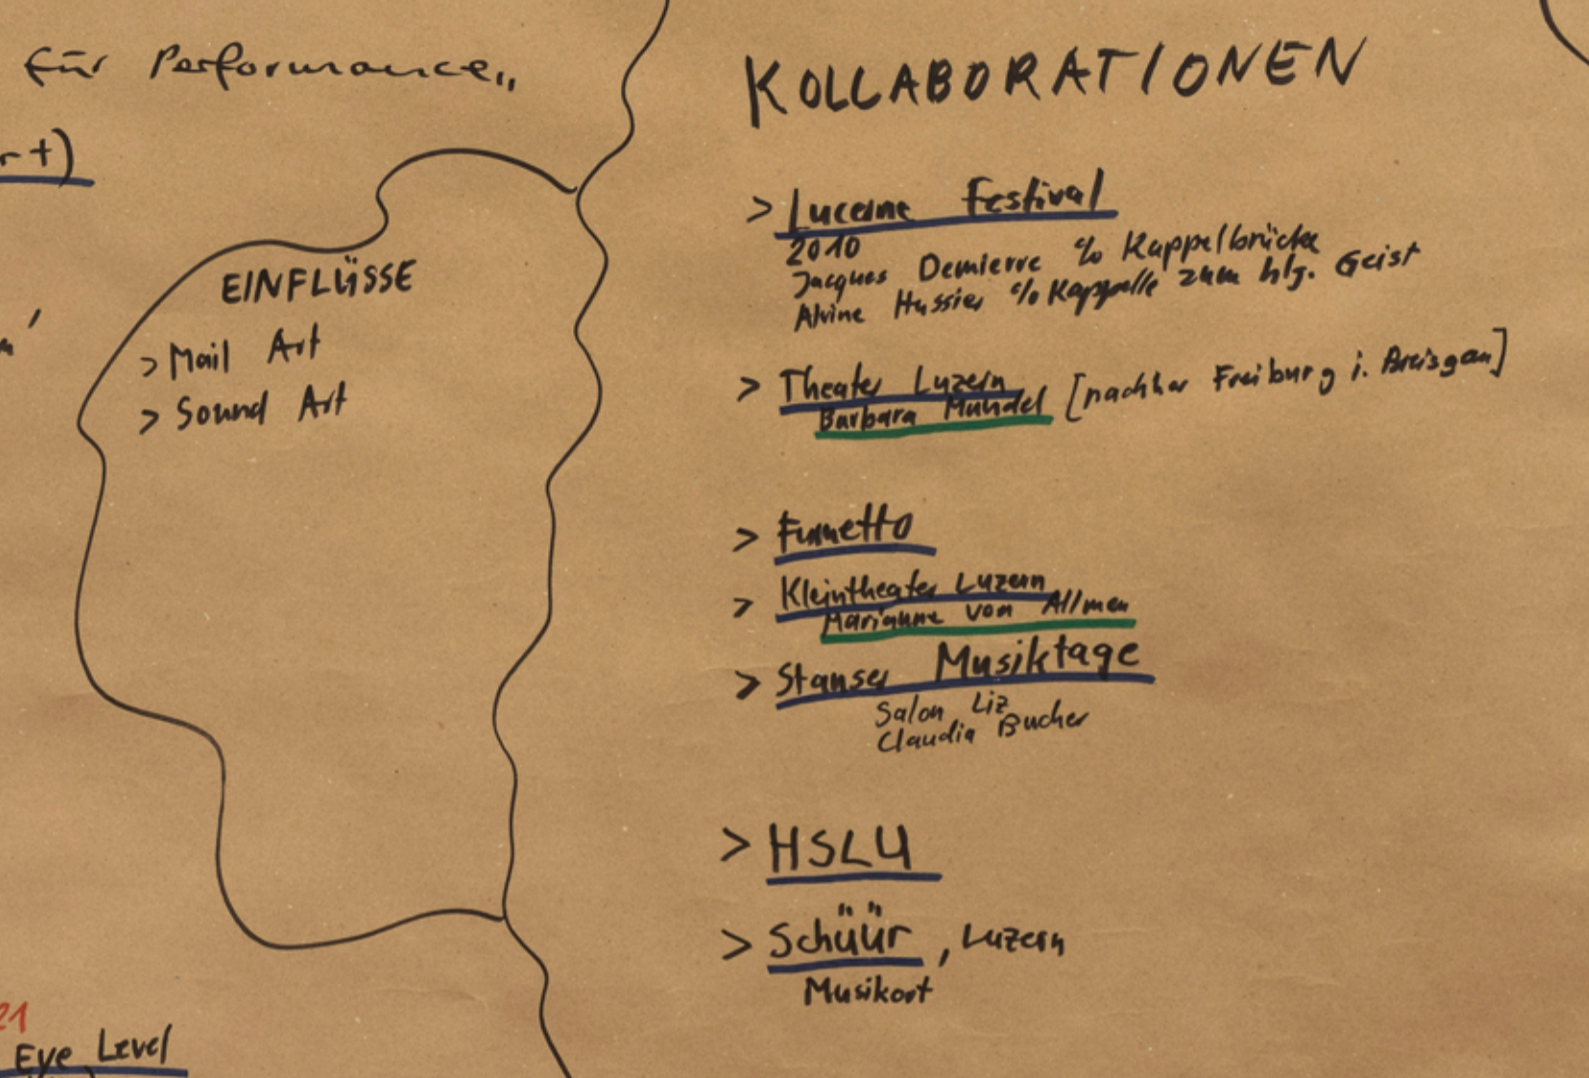 für Performance"
rt)
EINFLÜSSE
> Mail Art
> Sound Art
21
Eye Level
KOLLABORATIONEN
> Lucerne Festival
2010
Jacques Demierre % Kappelbrücke
Alvine Hussier % Kappelle zum hlg. Geist
> Theater Luzern
Barbara Mundel [nachher Freiburg i. Breisgau]
> Fumetto
> Kleintheater Luzern
Marianne von Allmen
> Stanser Musiktage
Salon Liz
Claudia Bucher
> HSLU
> Schüür, Luzern
Musikort